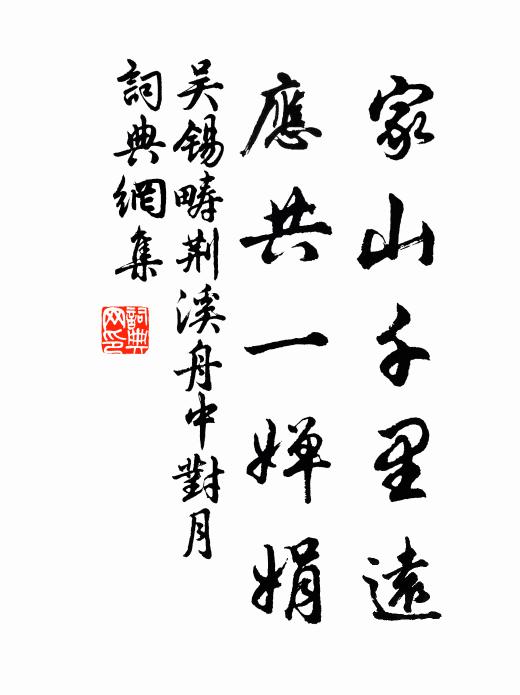 家山千里遠
應共一嬋娟
吴錫疇荆溪舟中對月
詞典網集
詞典
网印